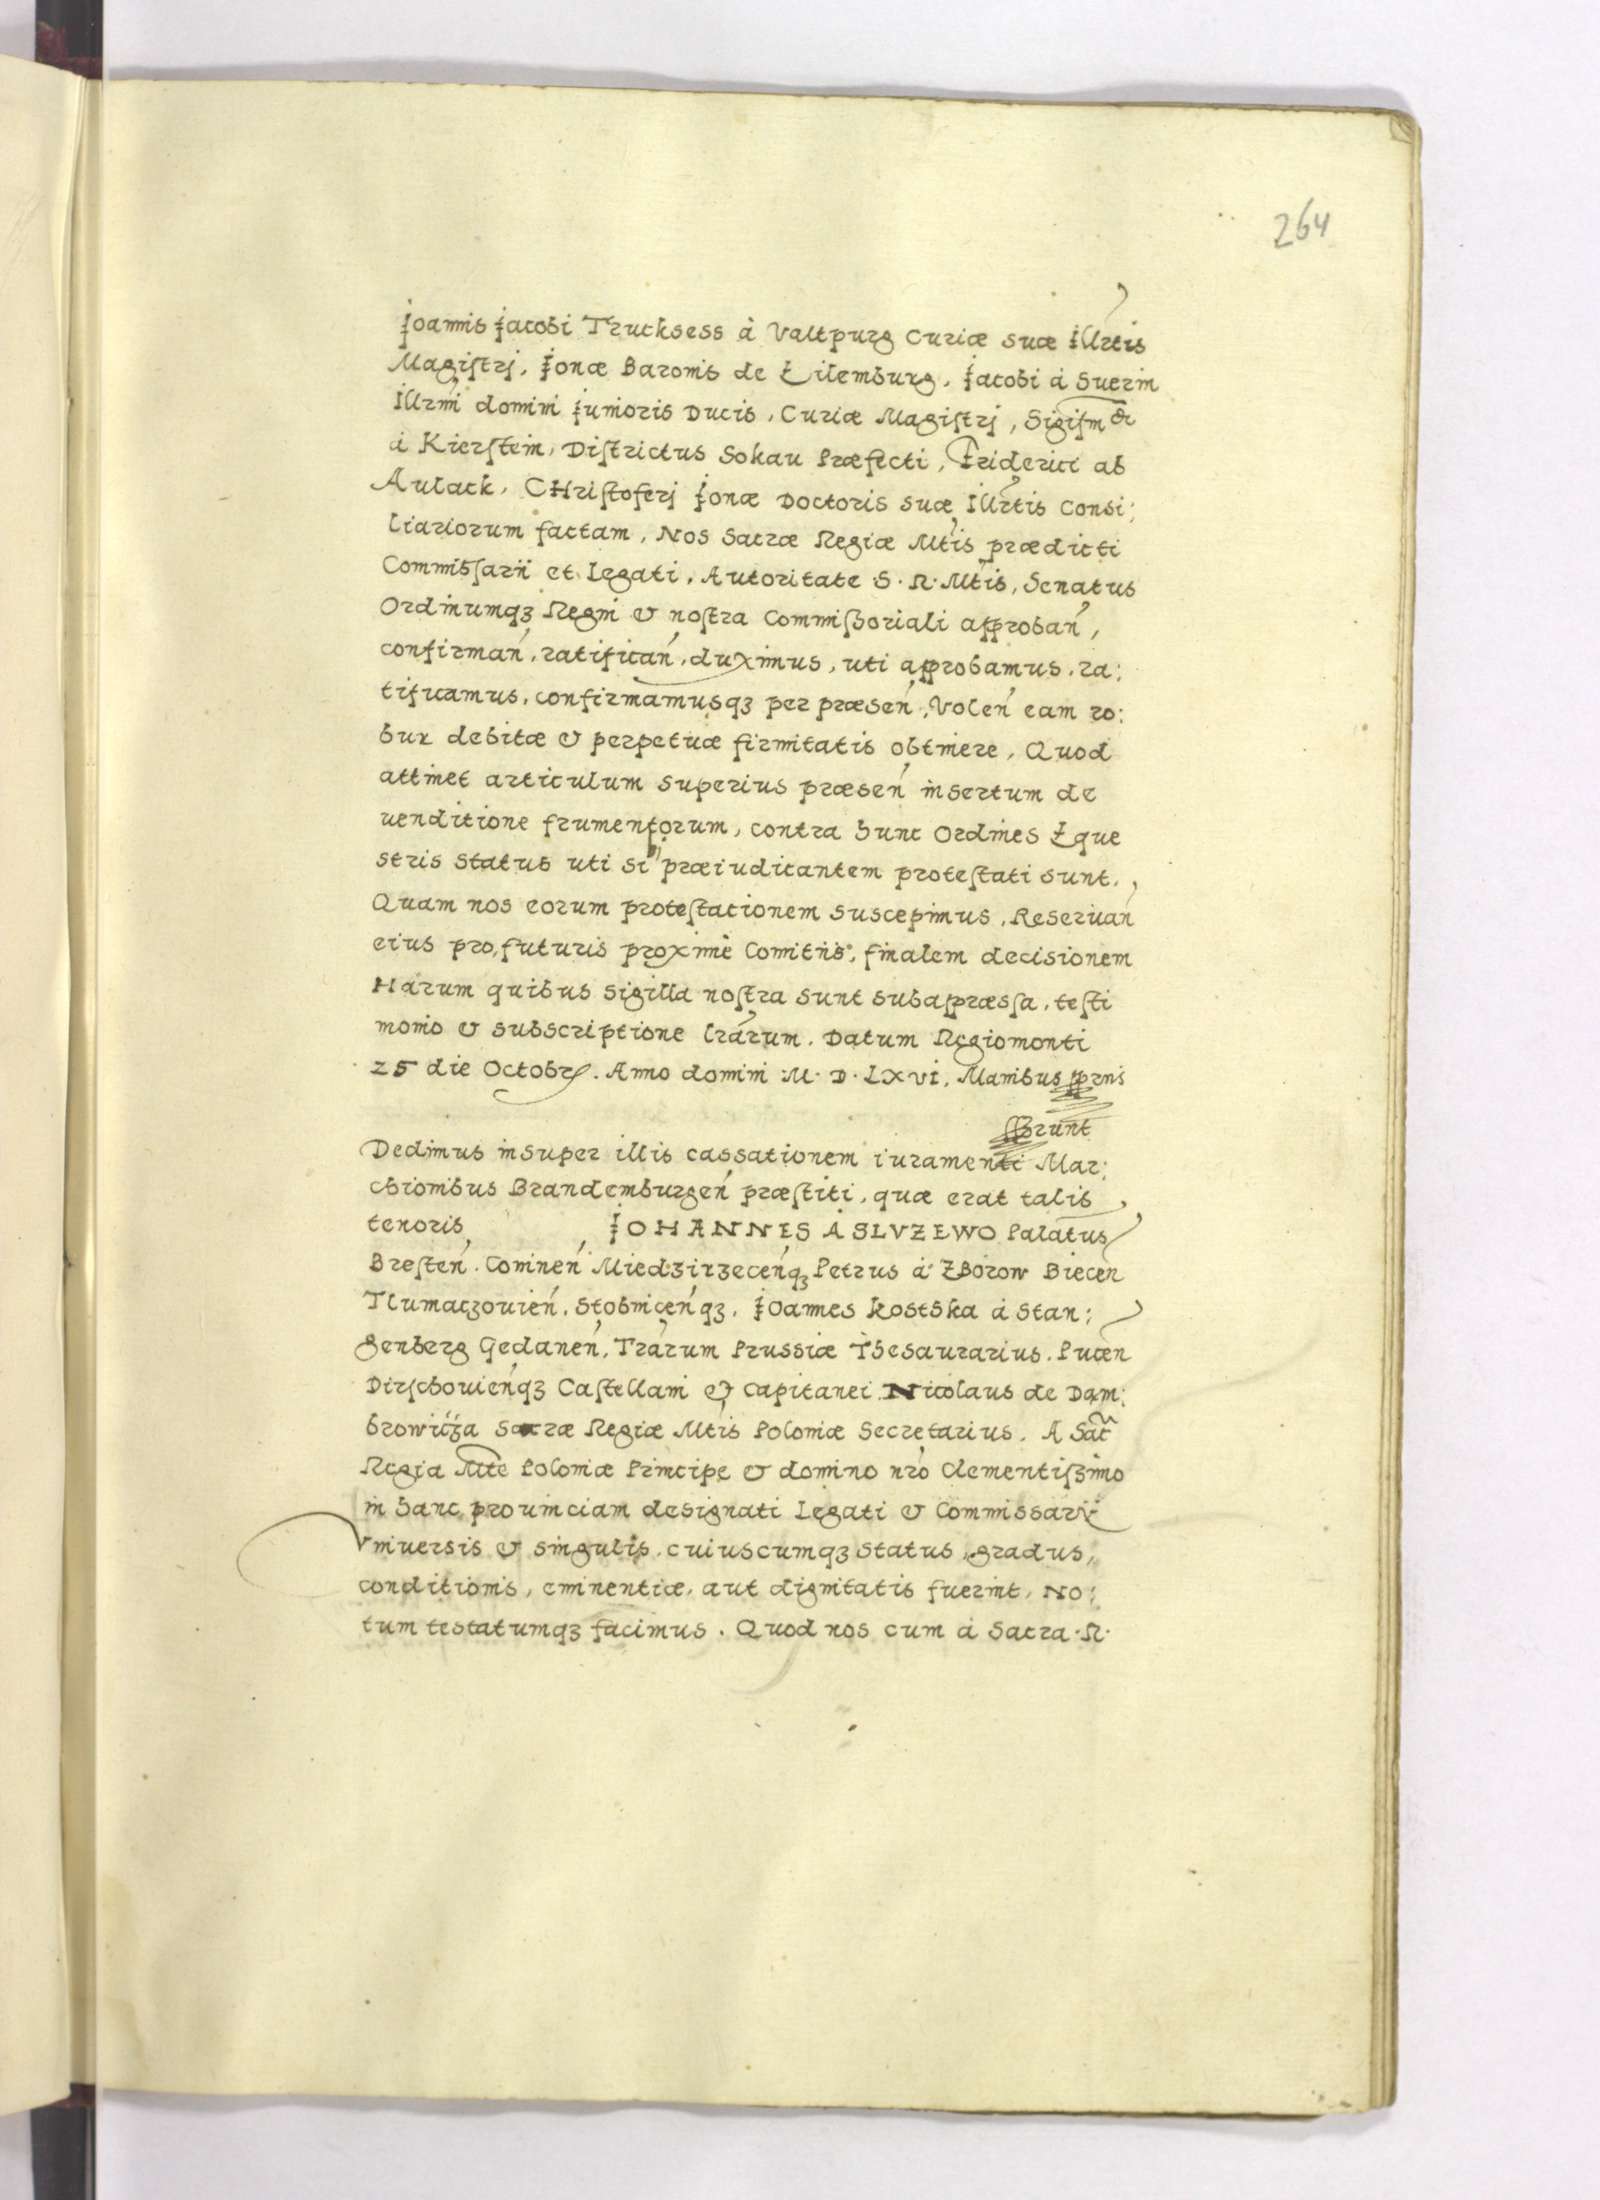 264
Joannis Jacobi Trucksess à Valtpurg Curiæ suæ Illrtis
Magistrj, Jonæ Baronis de Eilemburg, Jacobi à Suerin
Illrmi domini Junioris Ducis, Curiæ Magistrj, Sigism
à Kierstein, Districtus Sokau Præfecti, Friderici ab
Aulack, CHristoferj Jonæ Doctoris suæ Illrtis Consi:
liariorum factam, Nos Sacræ Regiæ Mtis prædicti
Commissarii et Legati, Autoritate S. R. Mtis, Senatus
Ordinumqȝ Regni & nostra Commissoriali approbań,
confirmań, ratificań, duximus, uti approbamus, ra:
tificamus, confirmamusqȝ per præseń, Voleń eam ro:
bur debitæ & perpetuæ firmitatis obtinere, Quod
attinet articulum superius præseń insertum de
uenditione frumentorum, contra hunc Ordines Eque
stris status uti sibi præiudicantem protestati sunt.
Quam nos eorum protestationem suscepimus, Reseruań
eius pro futuris proximè Comitiis, finalem decisionem
Harum quibus sigilla nostra sunt subappræssa, testi
monio & subscriptione lrarum. Datum Regiomonti
25 die Octobr. Anno domini M. D. LXVI. Manibus pprns
ssbrunt
Dedimus insuper illis cassationem iuramenti Mar:
chionibus Brandemburgeń præstiti, quæ erat talis
tenoris, JOHANNES A SLVZEWO Palatus
Bresteń. Coninień Miedzirzeceńqȝ Petrus à Zborow Biecen
Tlumaczouień. Stobniceńqȝ. Joannes Kostska à Stan:
genberg Gedaneń, Trarum Prussiæ Thesaurarius. Pucen
Dirschouieńqȝ Castellani & Capitanei Nicolaus de Dam:
browicza Sacræ Regiæ Mtis Poloniæ Secretarius. A Sac
Regia Mte Poloniæ Principe & domino nro clementissimo
in hanc prouinciam designati Legati & Commissarii
Vniuersis & singulis, cuiuscumqȝ status, gradus,
conditionis, eminentiæ, aut dignitatis fuerint, No:
tum testatumqȝ facimus. Quod nos cum à Sacra R.